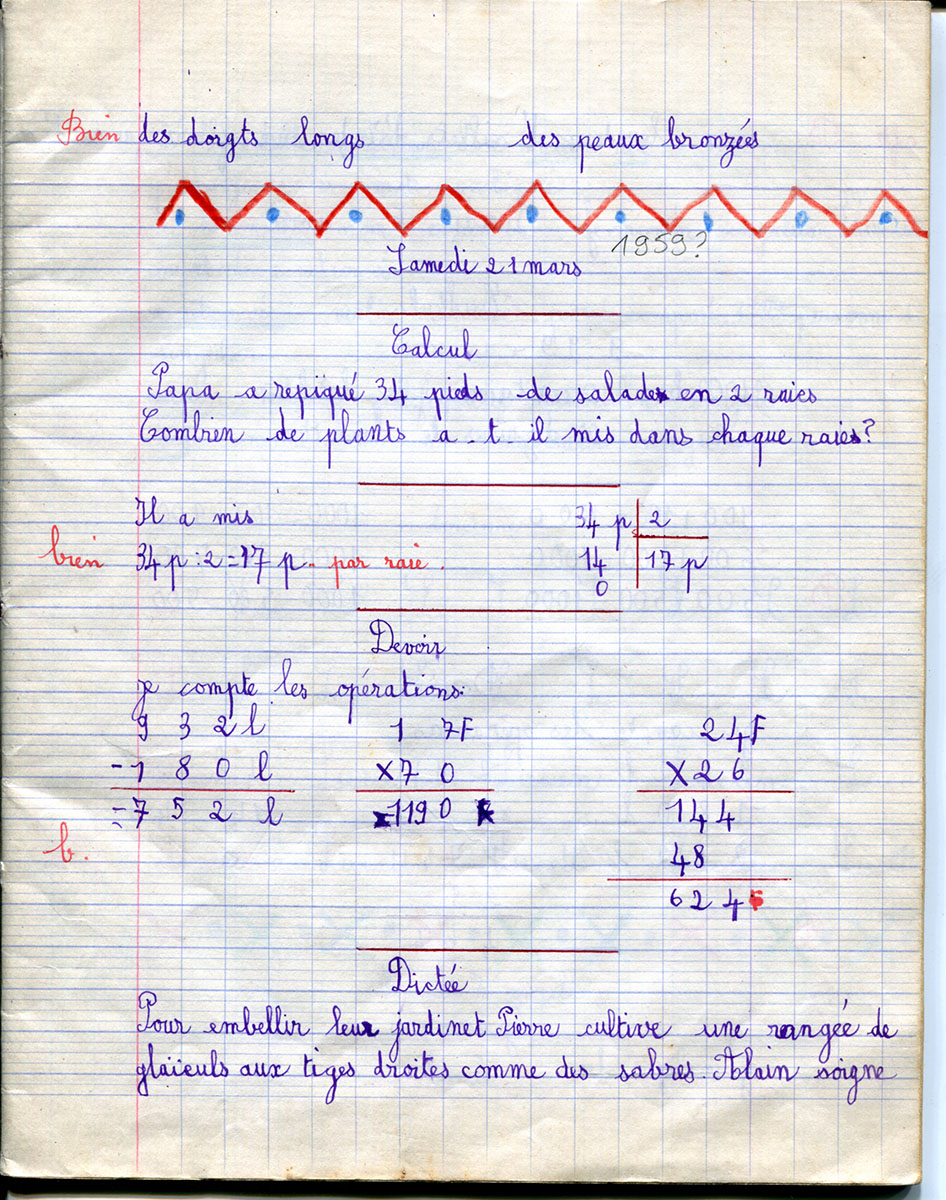 Bien des doigts longs des peaux bronzées
1959?
Samedi 21 mars
Calcul
Papa a repiqué 34 pieds de salades en 2 raies
Combien de plants a-t-il mis dans chaque raies?
Il a mis 34 p 2
bien 34 p : 2 = 17 p. par raie. 14 17 p
0
Devoir
je compte les opérations:
9 3 2 l 1 7F 24F
-1 8 0 l X7 0 X26
=7 5 2 l =119 0 F 144
b. 48
6 2 4 F
Dictée
Pour embellir leur jardinet Pierre cultive une rangée de
glaïeuls aux tiges droites comme des sabres. Alain soigne